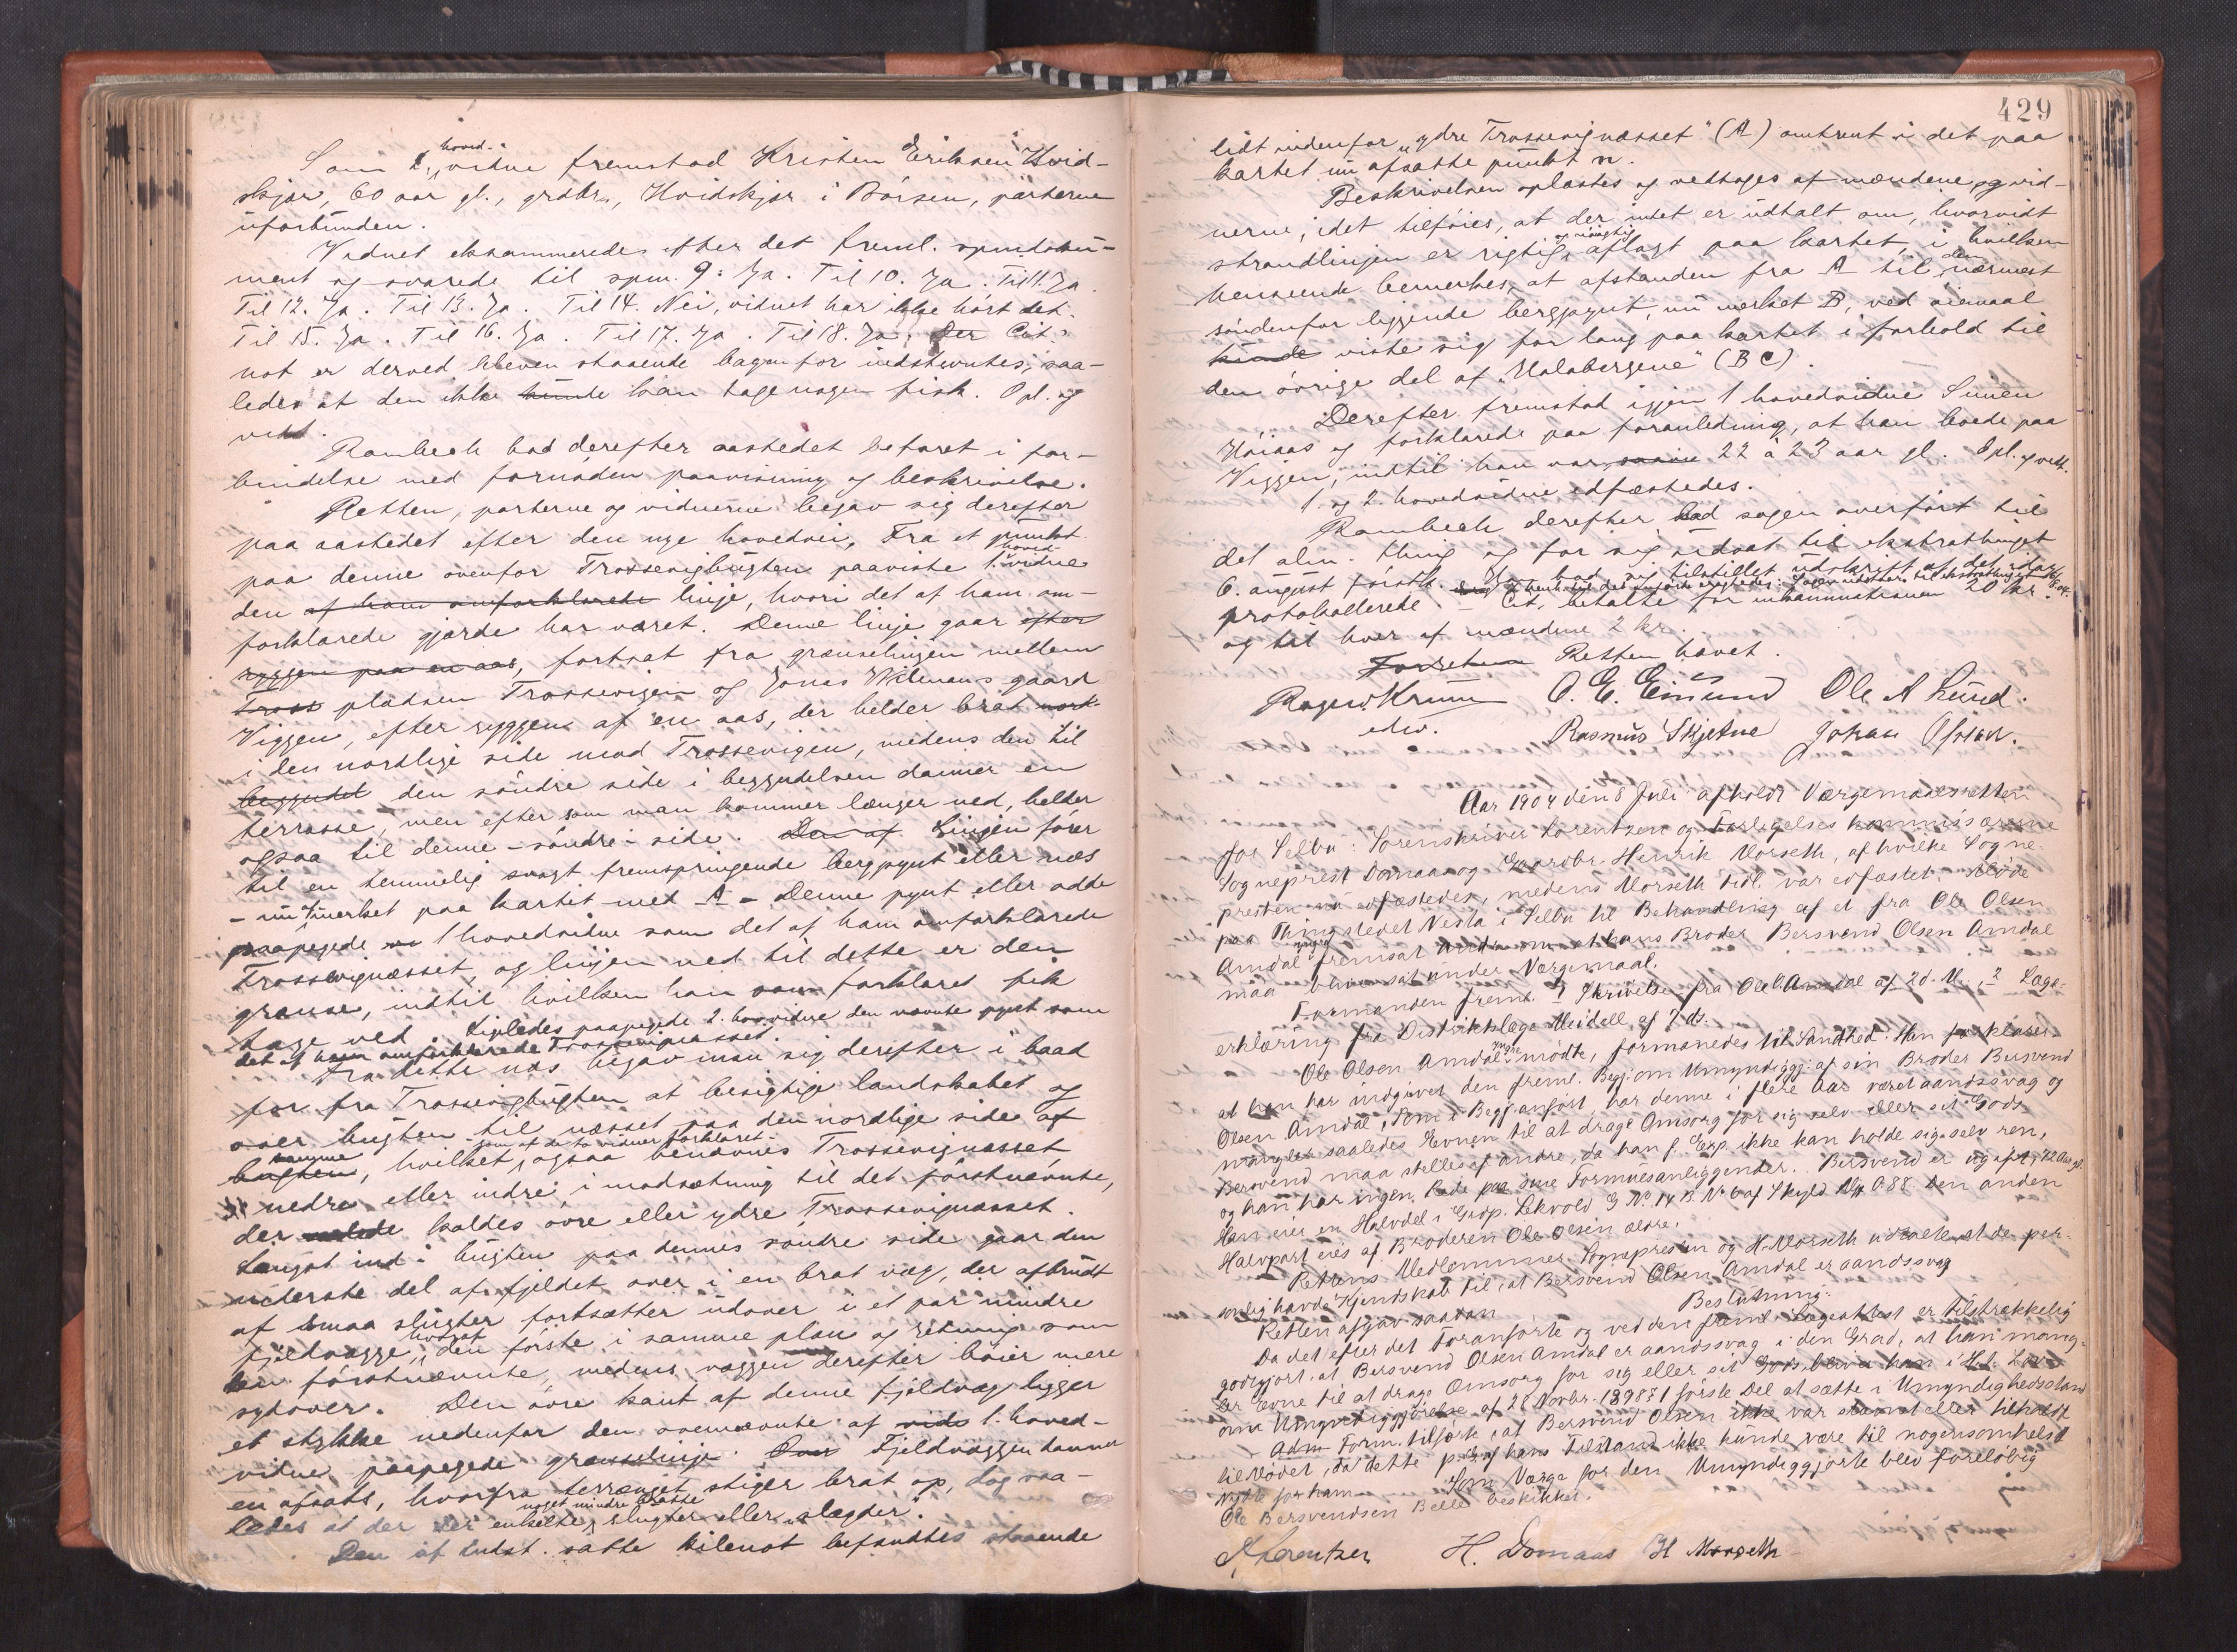 Som 2. hoved-vidne fremstod Kristen Eriksen Hvid-
skjær, 60 aar gl., grdbr., Hvidskjær i Børsen, parterne
uforbunden.
Vidnet eksammeredes efter det freml. spmdoku-
ment og svarede til spm. 9: Ja. Til 10. Ja. Til 11. Ja.
Til 12. Ja. Til 13. Ja. Til 14. Nei, vidnet har ikke hört det.
Til 15. Ja. Til 16. Ja. Til 17. Ja. Til 18. Ja; Der Cit.s
not er derved bleven staaende bagenfor indstevntes, saa-
ledes at den ikke kunde kan tage nogen fisk. Opl. og
vedt.
Rambech bad derefter aastedet befaret i for-
bindelse med fornöden paavisning og beskrivelse.
Retten, parterne og vidnerne begav sig derefter
paa aastedet efter den nye hovedvei. Fra et punkt
paa denne ovenfor Trossevigbugten paaviste 1. hoved-vidne
den af ham omforklarede linje, hvori det af ham om-
forklarede gjærde har været. Denne linje gaar efter
ryggen paa en aas, fortsat fra grænselinjen mellem
Tross pladsen Trossevigen og Jonas Wilmans gaard
Viggen, efter ryggen af en aas, der helder brat nord-
i den nordlige side mod Trossevigen, medens den til
begyndet den söndre side i begyndelsen danner en
terrasse, men efter som man kommer længer ned, helder
ogsaa til denne - söndre - side. Den af Linjen förer
til en temmelig svagt fremspringende bergpynt eller næs
- nu mærket paa kartet med A - Denne pynt eller odde
paapegede 1 hovedvidne som det af ham omforklarede
Trossevignæsset, og linjen ned til dette er den
grænse, indtil hvilken han som forklaret fik
tage ved. Ligeledes paapegede 2. hovvidne den nævnte pynt som
det af ham omforklarede Trossevignæsset.
Fra dette næs begav man sig derefter i baad
for fra Trossevigbugten at besigtige landskabet og
over bugten til næsset paa den nordlige side af
samme bugten, hvilket, - som af de to vidner forklaret - ogsaa benævnes Trossevignæsset
nedre eller indre i modsætning til det förstnævnte,
der kaldes övre eller ydre Trossevignæsset.
Længst ind i bugten paa dennes söndre side gaar den
nederste del af fjeldet over i en brat væg, der afbrudt
af smaa slugter fortsætter udover i et par mindre
fjeldvægge, hvoraf den förste i samme plan og retning som
den förstnævnte, medens væggen derefter böier mere
sydover. Den övre kant af denne fjeldvæg ligger
et stykke nedenfor den ovennævnte af vids 1. hoved-
vidne paapegede grænselinje. Over Fjeldvæggen danner
en afsats, hvorfra terrænget stiger brat op, dog saa-
ledes at der er enkelte, noget mindre bratte slugter eller "slægder".
Den af Indst. satte kilenot befandtes staaende
429
lidt indenfor "ydre Trossevignæsset" (A) omtrent i det paa
kartet nu afsatte punkt n.
Beskrivelsen oplæstes og vedtoges af mændene og vid-
nerne, idet tilföies, at der intet er udtalt om, hvorvidt
strandlinjen er rigtig og nöiagtig aflagt paa kartet, i hvilken
henseende bemerkes, at afstanden fra A til den nærmest
söndenfor liggende bergpynt, nu merket B, ved öiemaal
kunde viste sig for lang paa kartet i forhold til
den övrige del af "Halabergene" (B C).
Derefter fremstod igjen 1 hovedvidne Simen
Höiaas og forklarede paa foranledning, at han boede paa
Viggen, indtil han var 22 à 23 aar gl. Opl. og vedt.
1. og 2. hovedvidne edfæstedes.
Rambech derefter bad sagen overfört til
det alm. thing og for sig udsat til ekstrathinget
6. august förstk. Han bad sig tilstillet udskrift af det idag
protokollerede. - Cit. betalte for inkammationen 20 kr.
og til hver af mændene 2 kr.
Forretnin Retten hævet.
Ragnv. Krum O. E. Eimund Ole A Lund.
edsv. Rasmus Skjetne Johan Olsen.
Aar 1904 den 8 Juli afholdt Værgemaalsretten
for Selbu: Sorenskriver Lorentzen og Forligelses kommissærerne
Sogneprest Domaas og Gaardbr. Henrik Morseth, af hvilke Sogne-
presten nu edfæstedes, medens Morseth tidl. var edfæstet. Möde
paa Thingstedet Nesta i Selbu til Behandling af et fra Ole Olsen
Amdal yngre fremsat Andr. om at hans Broder Bersvend Olsen Amdal
maa blive sat under Værgemaal.
Formanden freml. 1 Skrivelse fra Ole O. Amdal af 2d. M., 2 Læge-
erklæring fra Distriktslæge Meidell af 7 ds.
Ole Olsen Amdal yngre mödte, formanedes til Sandhed. Han forklarer
at han har indgivet den freml. Begj. om Umyndiggj. af sin Broder Bersvend
Olsen Amdal, Som i Begj. anfört, har denne i flere Aar været aandssvag og
mangler saaledes Evnen til at drage Omsorg for sig selv eller sit Gods.
Bersvend maa stelles af andre, da han f. Exp. ikke kan holde sig selv ren,
og han har ingen Rede paa sine Formuesanliggender. Bersvend er ugift, 72 Aar gl.
Han eier en Halvdel i Grdp. Lekvold G No. 14 B. No 6 af Skyld Mk 0.88 den anden
Halvpart eies af Broderen Ole Olsen ældre.
Rettens Medlemmer Sognepresten og H. Morseth udtalte at de per-
sonlig havde Kjendskab til, at Bersvend Olsen Amdal er aandssvag
Retten afgav saadan Beslutning:
Da det efter det foranförte og ved den freml. Lægeattest er tilstrækkelig
godtgjort, at Bersvend Olsen Amdal er aandssvag i den Grad, at han mang-
ler Evne til at drage Omsorg for sig eller sit Gods, bliver han i H.t. Lov
om Umyndiggjörelse af 28 Novbr. 1898 § 1 förste Del at sætte i Umyndighedsstand
Adm Form. tilförte, at Bersvend Olsen ikke var stevnet eller tilholdt
til Mödet, da dette p. Gr. af hans Tilstand ikke kunde være til nogensomhelst
Nytte for ham. Som Værge for den Umyndiggjorte blev foreløbig
Ole Bersvendsen Bell beskikket.
Lorentzen H. Domaas H Morseth